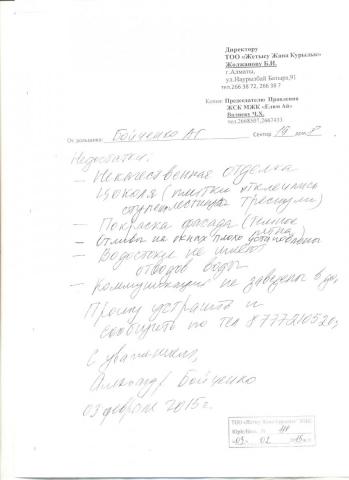 Директору
ТОО «Жетысу Жана Курылыс»
Жолжанову Б.И.
г.Алматы,
ул.Наурызбай Батыра,91
тел.266 38 72, 266 38 7
Копия: Председателю Правления
ЖСК МЖК «Елим Ай»
Валиеву Ч.Х.
тел.2668307,2667433
От дольщика: Бойченко АГ Сектор 19 дом 8
Недостатки.
— Некачественная отделка
цоколя (плитки отклеились
ступени лестницы треснули)
— Покраска фасада (темное
пятно)
— Отливы на окнах плохо установлены
— Водостоки не имеют
отводов воды
— Коммуникации не заведены в дом
Прошу устранить и
сообщить по тел 8 777210520,
С уважением,
Александр Бойченко
03 февраля 2015г.
ТОО «Жетысу Жана Курылыс»
03 02